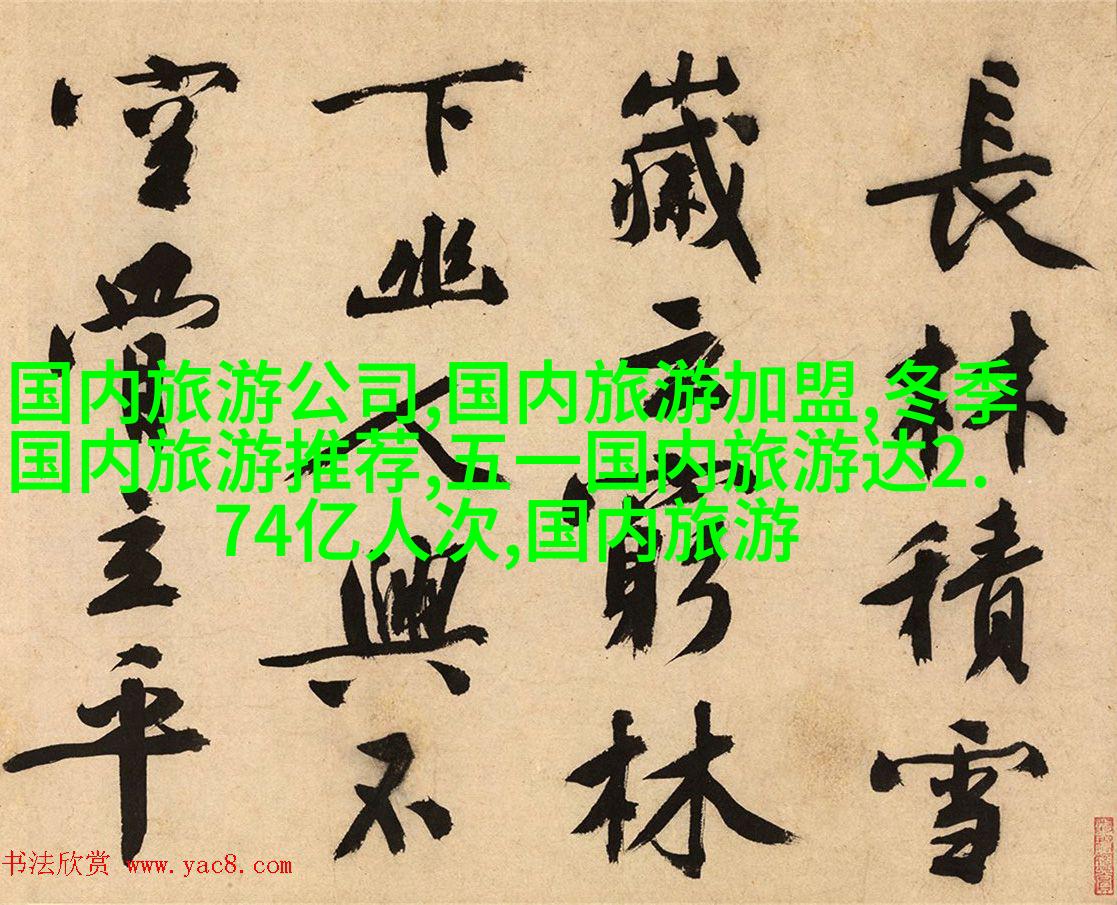 長林積雪
嵗云窮林
下幽人興不
空骨立平
国内旅游公司,国内旅游加盟,冬季
国内旅游推荐,五一国内旅游达2.
74亿人次,国内旅游
书法欣赏 www.yac8.com